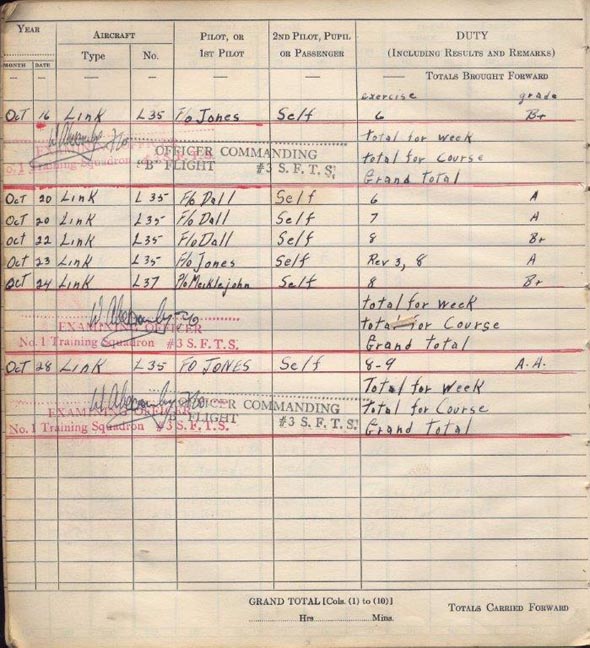 YEAR AIRCRAFT PILOT, OR 2ND PILOT, PUPIL DUTY
Type No. 1ST PILOT OR PASSENGER (INCLUDING RESULTS AND REMARKS)
MONTH DATE
— — — — — — — TOTALS BROUGHT FORWARD
exercise grade
Oct 16 Link L35 F/o Jones Self 6 B+
Total for week
OFFICER COMMANDING total for Course
No. 1 Training Squadron "B" FLIGHT #3 S. F. T. S. Grand Total
Oct 20 Link L 35 F/o Dall Self 6 A
Oct 20 Link L35 F/o Dall Self 7 A
Oct 22 Link L35 F/o Dall Self 8 B+
Oct 23 Link L35 F/o Jones Self Rev 3, 8 A
Oct 24 Link L37 P/o Meiklejohn Self 8 B+
total for Week
EXAMINING OFFICER total for Course
No. 1 Training Squadron #3 S. F. T. S. Grand Total
Oct 28 Link L35 FO JONES Self 8-9 A.A.
Total for Week
EXAMINING OFFICER OFFICER COMMANDING Total for Course
No. 1 Training Squadron #3 S. F. T. S. FLIGHT #3 S. F. T. S. Grand Total
GRAND TOTAL [Cols. (1) to (10)] TOTALS CARRIED FORWARD
Hrs Mins.